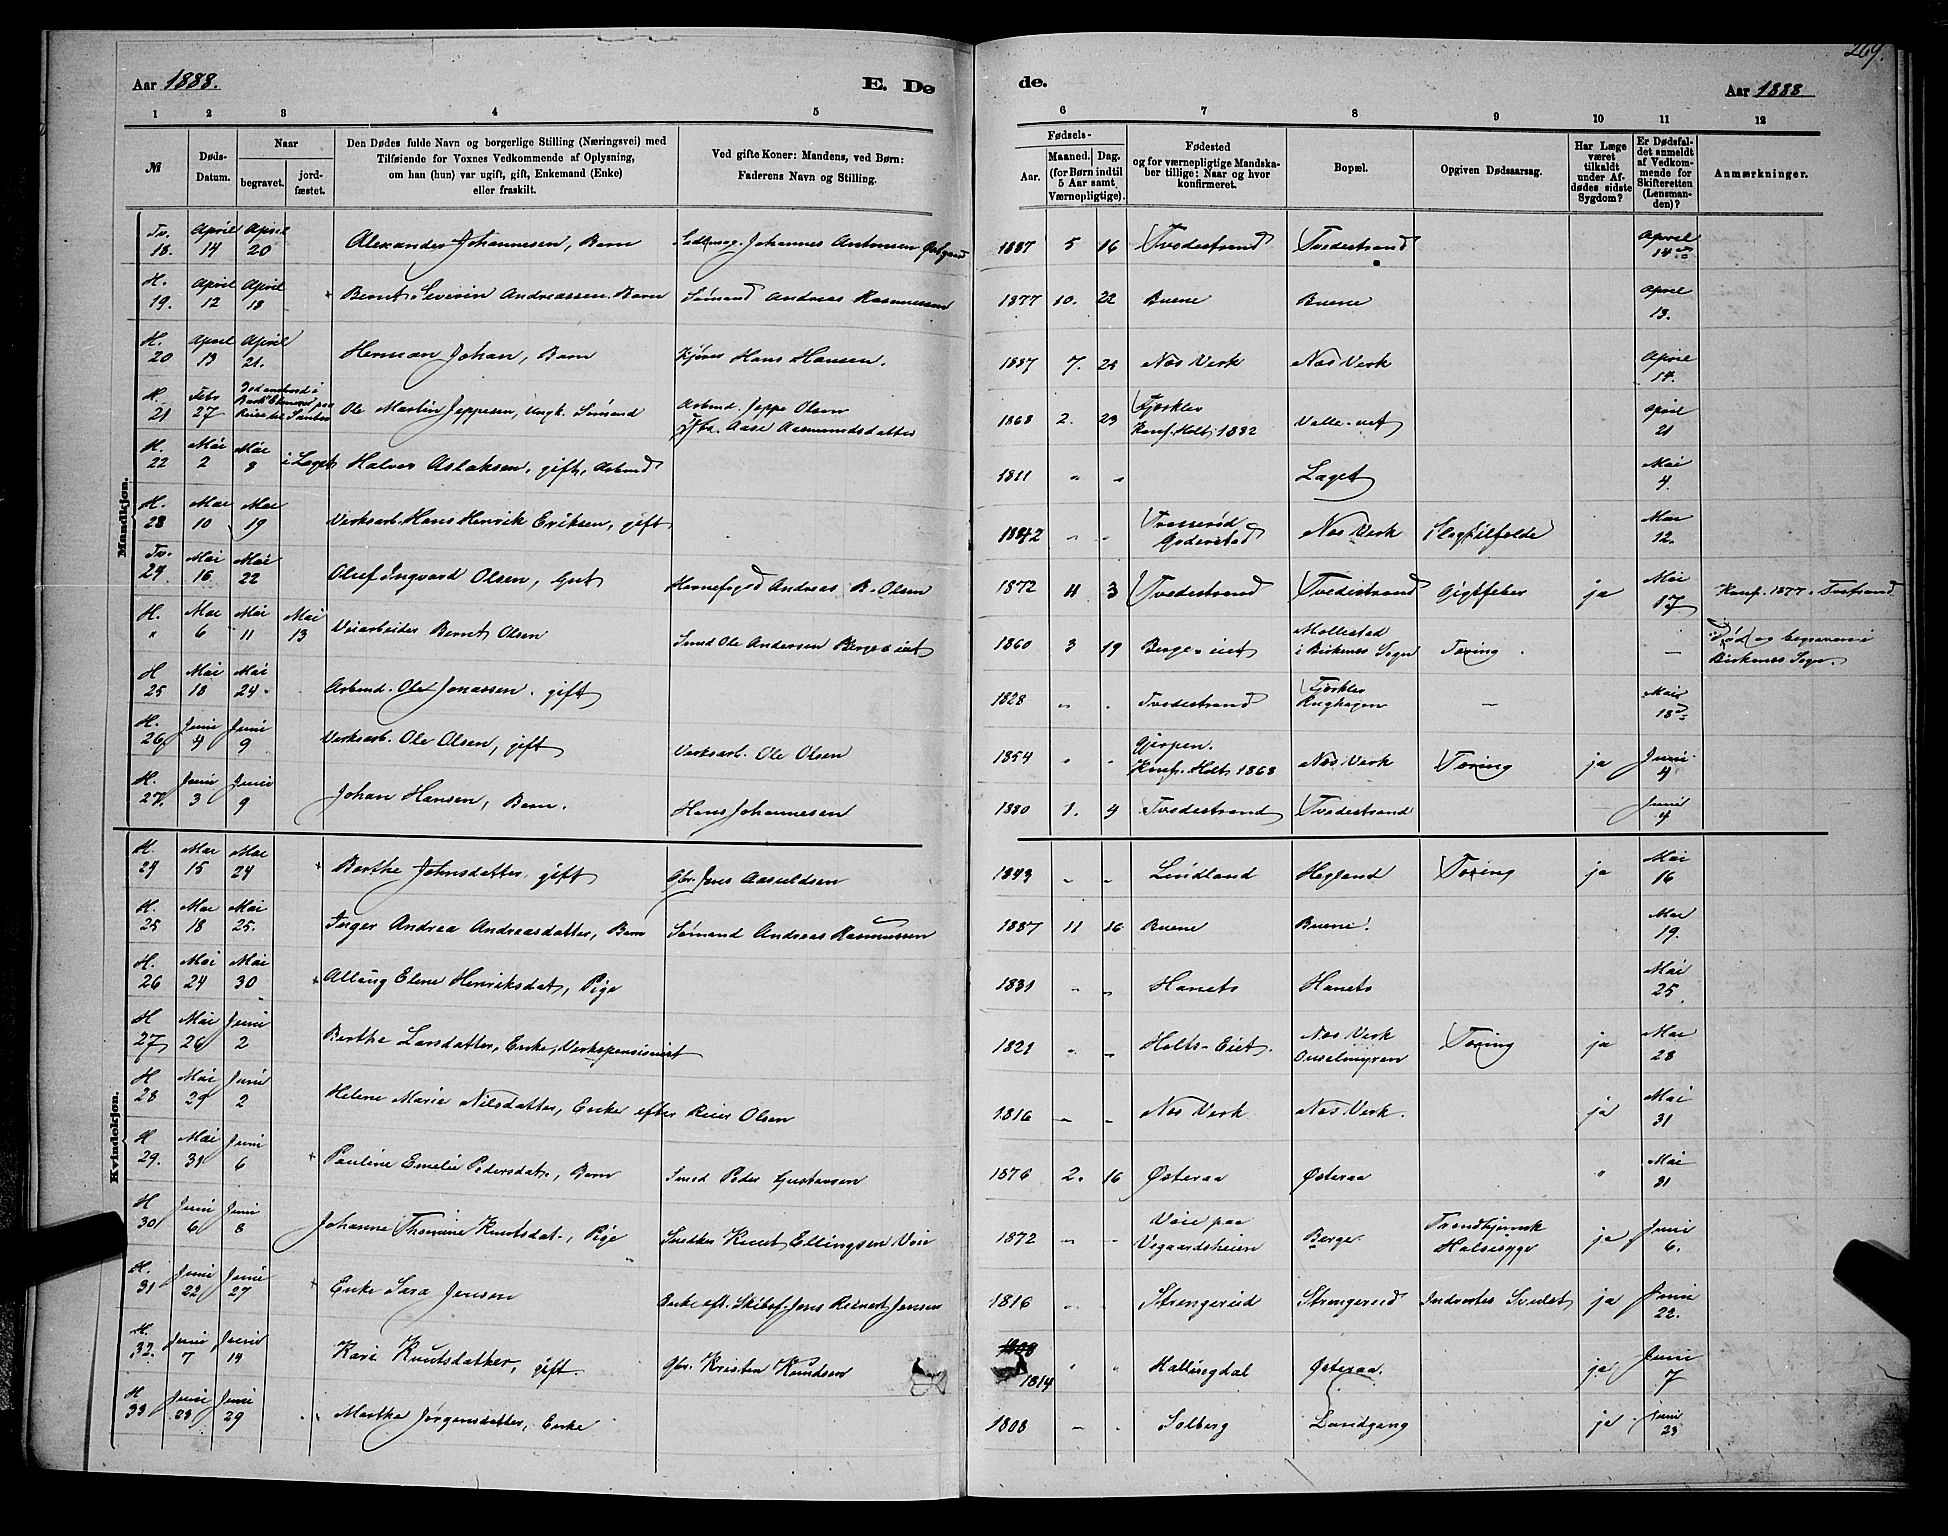 269.
Aar 1888.
E. Dø
de.
Aar 1888.
1 2 3 4 5 6 7 8 9 10 11 12
№
Døds-Datum.
Naar
begravet.
jord-fæstet.
Den Dødes fulde Navn og borgerlige Stilling (Næringsvei) med
Tilføiende for Voxnes Vedkommende af Oplysning,
om han (hun) var ugift, gift, Enkemand (Enke)
eller fraskilt.
Ved gifte Koner: Mandens, ved Børn:
Faderens Navn og Stilling.
Fødsels-
Aar.
Maaned. Dag.
(for Børn indtil
5 Aar samt
Værnepligtige).
Fødested
og for værnepligtige Mandska-
ber tillige: Naar og hvor
konfirmeret.
Bopæl.
Opgiven Dødsaarsag.
Har Læge
været
tilkaldt
under Af-
dødes sidste
Sygdom?
Er Dødsfal-
det anmeldt
af Vedkom-
mende for
Skifteretten
(Lensman-
den)?
Anmærkninger.
Mandkjøn.
Tv. 18. April 14 April 20 Alexander Johannesen, Barn Johannes Antonsen 1887 5 16 Tvedestrand Tvedestrand April 14
H. 19. April 12 April 18 Bernt Severin Andreassen. Barn Sømand Andreas Rasmussen 1877 10. 22 Buene Buene April 13.
H. 20 April 13 April 21. Herman Johan, Barn Kjører Hans Hansen. 1887 7. 25 Næs Verk Næs Verk April 14.
H. 21 Febr 27 Ole Martin Jeppesen, Ungk. Sømand Arbmd. Jeppe Olsen Aase Aasmundsdatter 1868 2. 23 Fjæreklev Konf. Holt 1882 Valle-eiet April 21
H. 22 Mai 2 Mai 8 i Laget Halvor Aslaksen, gift, Arbmd 1811 " " Laget Mai 4.
H. 23 Mai 10 Mai 19 Verksarb. Hans Henrik Eriksen, gift 1842 " " Næs Verk Slagtilfælde Mai 12.
Tv. 24 Mai 16 Mai 22 Oluf Ingvard Olsen, Gut Havnefoged Andreas B. Olsen 1872 4 3 Tvedestrand Tvedestrand Gigtfeber ja Mai 17 Konf. 1877
H. " Mai 6 Mai 11 Mai 13 Veiarbeider Bernt Olsen Smed Ole Andersen Berge-eiet 1860 3 19 Berge-eiet Mollestad i Birkenes Sogn Tæring — Død og begraven i Birkenes Sogn.
H 25 Mai 18 Mai 24. Arbmd. Ole Jonassen, gift 1828 " " Tvedestrand Mai 18
H. 26 Juni 4 Juni 9 Verksarb. Ole Olsen, gift Verksarb. Ole Olsen 1854 " " Gjerpen. Konf. Holt 1868 Næs Verk Tæring ja Juni 4
H. 27. Juni 3 Juni 9 Johan Hansen, Barn. Hans Johannesen 1880 1. 9 Tvedestrand Tvedestrand Juni 4
Kvindekjøn.
H. 24 Mai 15 Mai 24 Berthe Johnsdatter, gift Gbr. Jens Aasuldsen 1843 " " Lindland Hegland Tæring ja Mai 16
H. 25 Mai 18 Mai 25. Inger Andrea Andreasdatter, Barn Sømand Andreas Rasmussen 1887 11 16 Buene Buene Mai 19.
H. 26 Mai 24 Mai 30 Allaug Elene Henriksdat, Pige 1831 " " Hanets Hanets Mai 25
H 27 Mai 26 Juni 2 Berthe Larsdatter, Enke, Verkspensionist 1821 " " Holts-Eiet. Næs Verk Tæring ja Mai 28
H 28 Mai 29 Juni 2 Helene Marie Nilsdatter, Enke efter Reier Olsen 1816 " " Næs Verk Næs Verk. ja Mai 31
H 29. Mai 31 Juni 6 Pauline Emelie Pedersdat., Barn Smed Peder Gustavsen 1876 2. 16 Østeraa Østeraa " Mai 31
H 30 Juni 6 Juni 8 Johanne Thomine Knutsdat., Pige Snedker Knut Ellingsen Voie 1872 " " Voie paa Vegaardsheien Berge. Halsesyge ja Juni 6.
H. 31 Juni 22 Juni 27 Enke Sara Jensen Enke eft. Skibsf. Jens Reinert Jensen 1816 " " Strengereid Strengereid Indvortes Svulst ja Juni 22.
H. 32. Juni 7 Juni 14 Kari Knutsdatter, gift. Gbr. Kristen Knudsen 1814 " " Hallingdal Østeraa. ja Juni 7
H 33 Juni 23 Juni 29 Marthe Jørgensdatter, Enke 1808 " " Solberg Landgang ja Juni 23